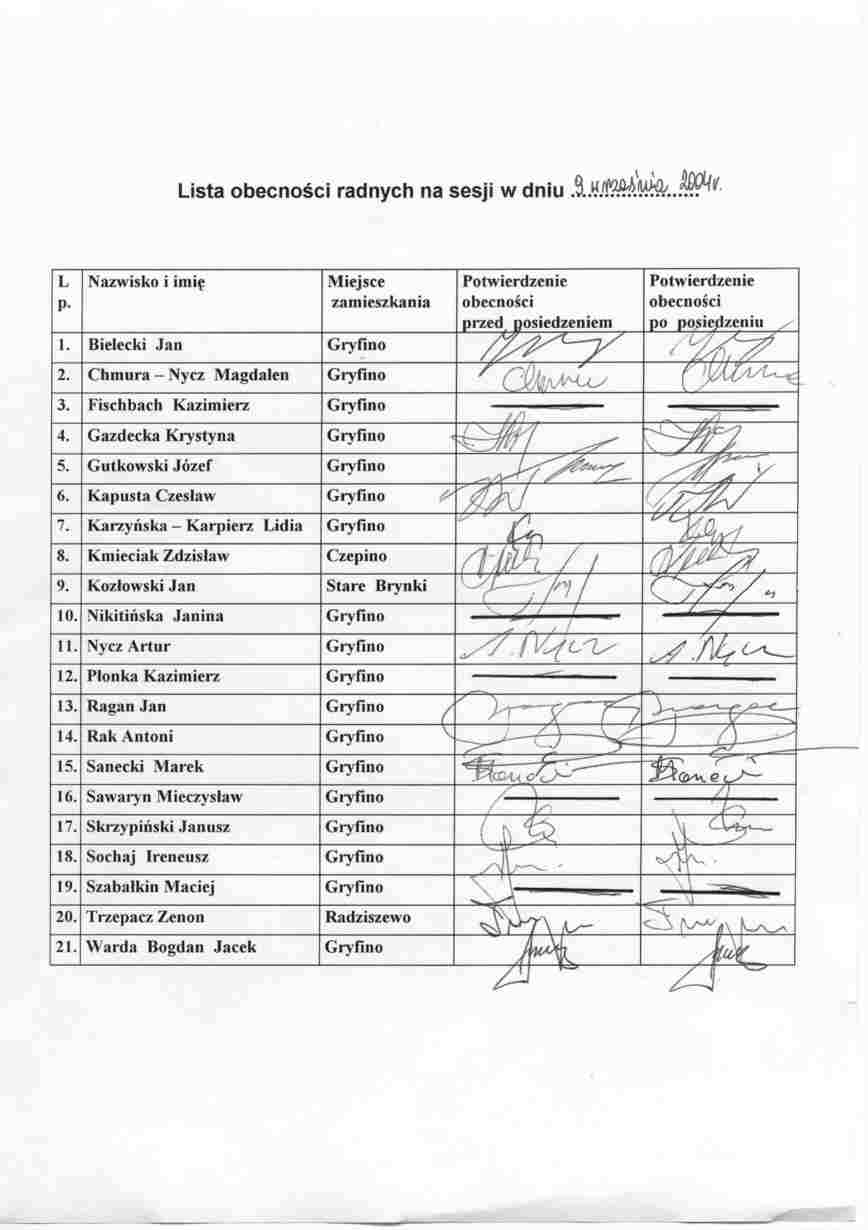 Lista obecności radnych na sesji w dniu 9 września 2004r.
L p. Nazwisko i imię Miejsce zamieszkania Potwierdzenie obecności przed posiedzeniem Potwierdzenie obecności po posiedzeniu
1. Bielecki Jan Gryfino
2. Chmura – Nycz Magdalen Gryfino
3. Fischbach Kazimierz Gryfino
4. Gazdecka Krystyna Gryfino
5. Gutkowski Józef Gryfino
6. Kapusta Czesław Gryfino
7. Karzyńska – Karpierz Lidia Gryfino
8. Kmieciak Zdzisław Czepino
9. Kozłowski Jan Stare Brynki
10. Nikitińska Janina Gryfino
11. Nycz Artur Gryfino A. Nycz A. Nycz
12. Płonka Kazimierz Gryfino
13. Ragan Jan Gryfino
14. Rak Antoni Gryfino
15. Sanecki Marek Gryfino
16. Sawaryn Mieczysław Gryfino
17. Skrzypiński Janusz Gryfino
18. Sochaj Ireneusz Gryfino
19. Szabałkin Maciej Gryfino
20. Trzepacz Zenon Radziszewo
21. Warda Bogdan Jacek Gryfino